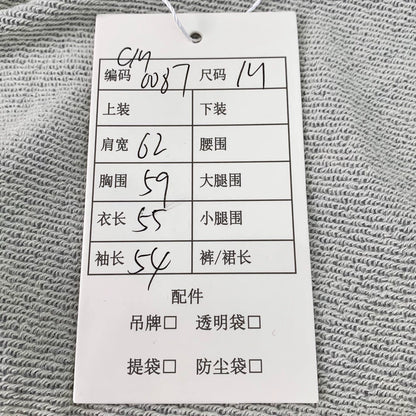 编码 CM 0087 尺码 M
上装 下装
肩宽 62 腰围
胸围 59 大腿围
衣长 55 小腿围
袖长 54 裤/裙长
配件
吊牌□ 透明袋□
提袋□ 防尘袋□